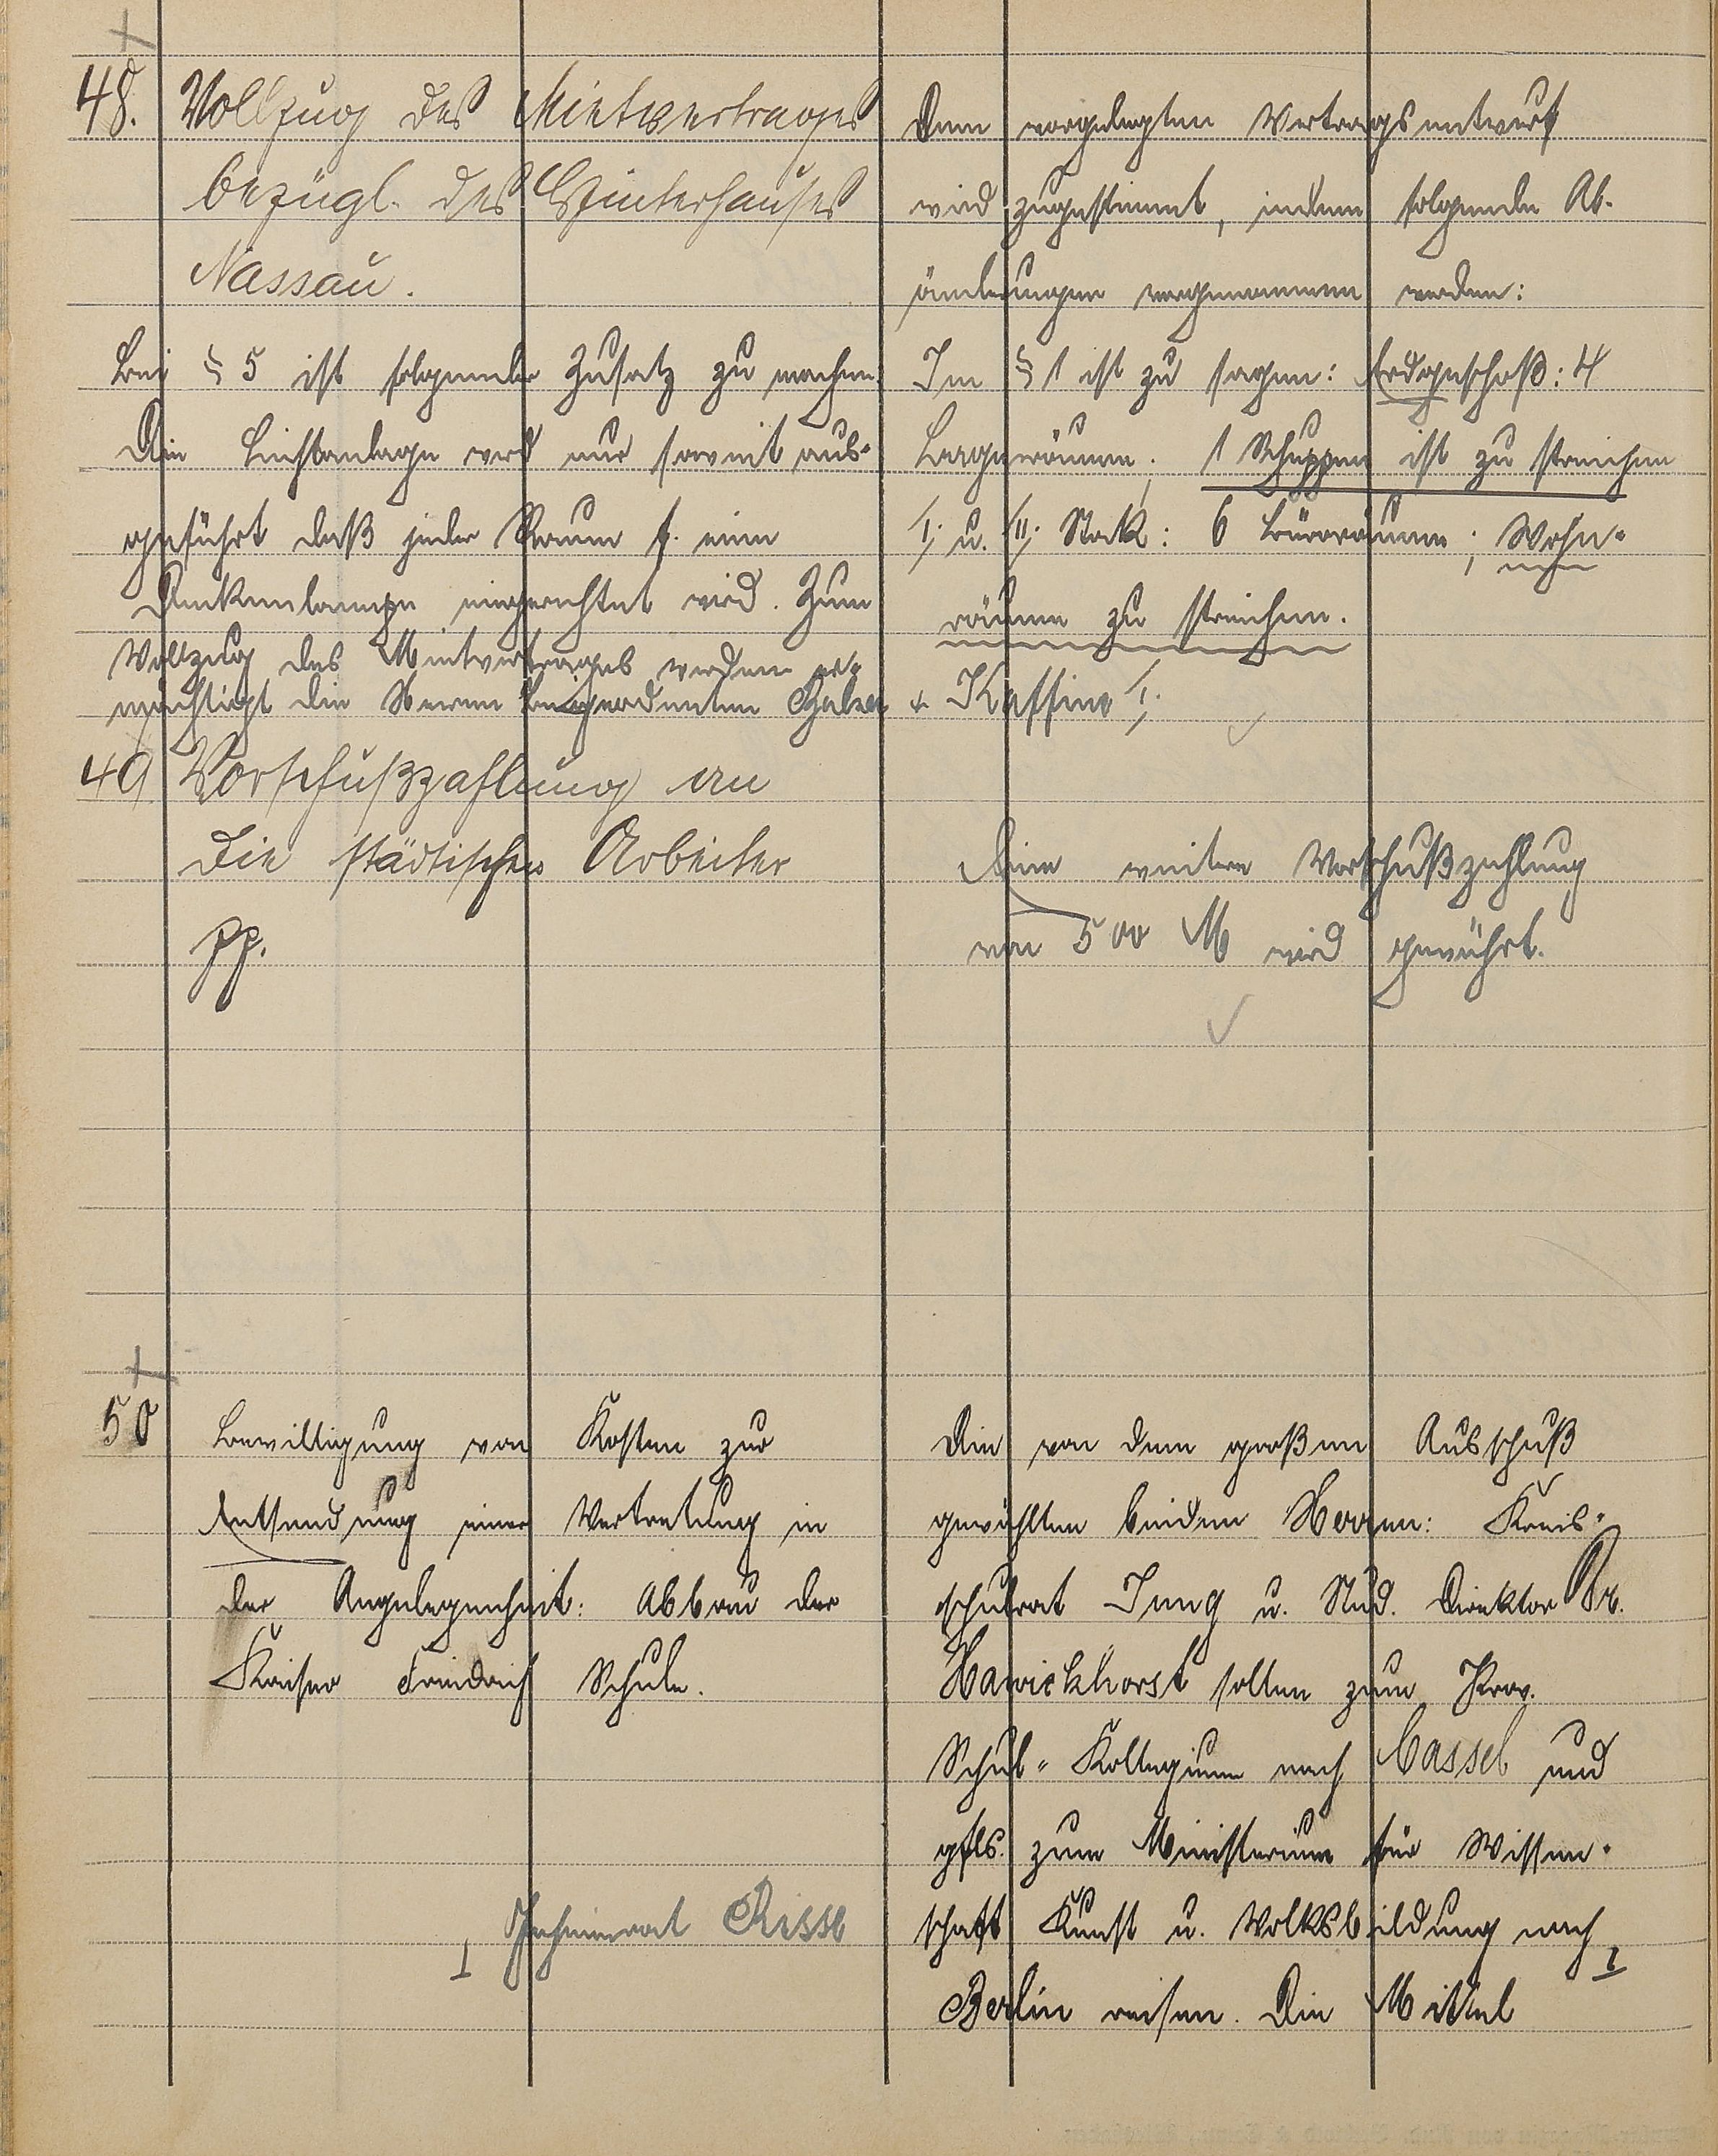 48. Vollzug des Mietvertrages
bezügl. des Hinterhauses
Nassau.
Dem vorgelegten Vertragsentwurf
wird zugestimmt, indem folgende Ab-
änderungen vorgenommen werden:
Im § 1 ist zu sagen: Erdgeschoß: 4
Lagerräume. 1 Schuppen ist zu streichen
I. u. II. Stock: 6 Büroräume; Wohn-
räume zu streichen.
Bei § 5 ist folgender Zusatz zu machen
Die Lichtanlage wird nur soweit aus-
geführt daß jeder Raum f. eine
Deckenlampe eingerichtet wird. Zum
Vollzug des Mietvertrages werden er-
mächtigt die Herren Beigeordneten
+ Kassine I.
49 Vorschußzahlung an
die städtischen Arbeiter
pp.
Eine weitere Vorschußzahlung
von 500 M wird gewährt.
50 Bewilligung von Kosten zur
Entsendung einer Vertretung in
der Angelegenheit: Abbau der
Kaiser Friedrich Schule.
Die von dem großen Ausschuß
gewählten beiden Herren: Kreis-
schulrat Jung u. Stud. Direktor Dr.
Hawickhorst sollen zum Prov.
Schul-Kollegium nach Cassel und
gfls. zum Ministerium für Wissen-
schaft Kunst u. Volksbildung nach I
Berlin reisen. Die Mittel
I Geheimrat Risse